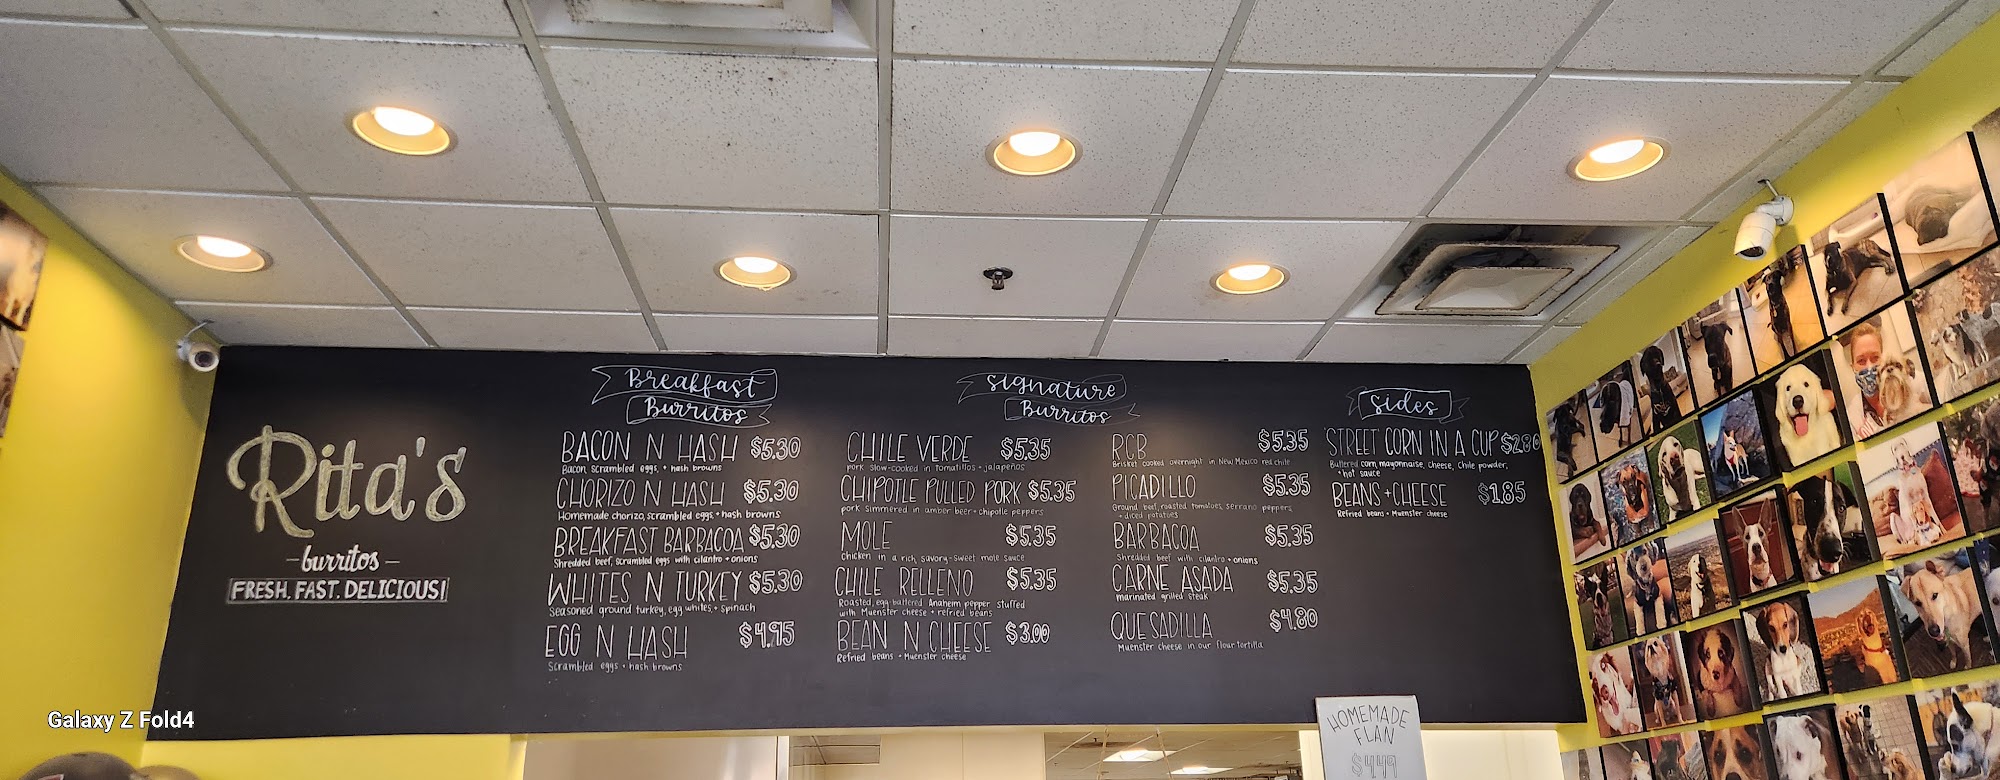 Rita's
burritos
FRESH. FAST. DELICIOUS!
Breakfast
Burritos
BACON N HASH $5.30
Bacon, scrambled eggs, + hash browns
CHORIZO N HASH $5.30
Homemade chorizo, scrambled eggs, + hash browns
BREAKFAST BARBACOA $5.30
Shredded beef, scrambled eggs with cilantro + onions
WHITES N TURKEY $5.30
Seasoned ground turkey, egg whites, + spinach
EGG N HASH $4.95
Scrambled eggs + hash browns
Signature
Burritos
CHILE VERDE $5.35
pork slow-cooked in tomatillos + jalapeños
CHIPOTLE PULLED PORK $5.35
pork simmered in amber beer + chipotle peppers
MOLE $5.35
Chicken in a rich, savory-sweet mole sauce
CHILE RELLENO $5.35
Roasted, egg-battered Anaheim pepper stuffed
with Muenster cheese + refried beans
BEAN N CHEESE $3.00
Refried beans + Muenster cheese
RCB $5.35
Brisket cooked overnight in New Mexico red chile
PICADILLO $5.35
Ground beef, roasted tomatoes, serrano peppers,
+ diced potatoes
BARBACOA $5.35
Shredded beef with cilantro + onions
CARNE ASADA $5.35
marinated grilled steak
QUESADILLA $4.80
Muenster cheese in our flour tortilla
Sides
STREET CORN IN A CUP $2.80
Buttered corn, mayonnaise, cheese, chile powder,
+ hot sauce
BEANS + CHEESE $1.85
Refried beans + Muenster cheese
HOMEMADE
FLAN
$4.49
Galaxy Z Fold4